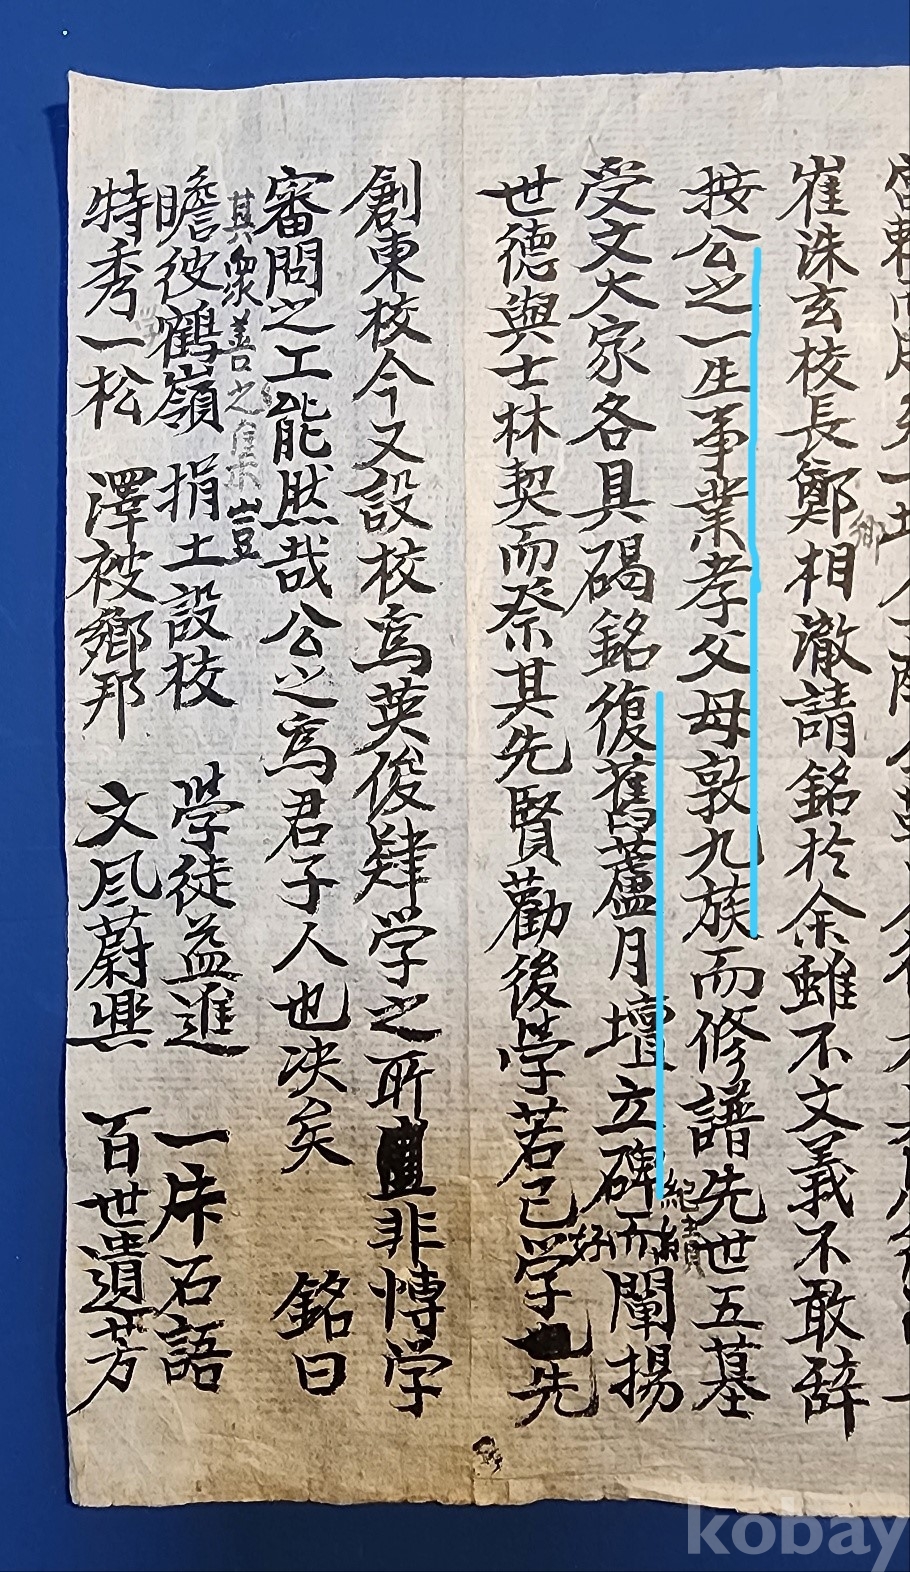 崔洙玄校長鄭相澈請銘於余雖不文義不敢辞
鄉
按公之一生事業孝父母敦九族而修譜先世五墓
紀績
受文大家各具碣銘復舊蘆月壇立碑而闡揚
好
世德與士林契而祭其先賢勸後学若己学先
創東校今又設校為英俊肄学之所 非博学
審問之工能然哉公之為君子人也决矣 銘曰
其衆善之 豈
瞻彼鶴嶺 捐土設校 学徒益進 一片石語
特秀一松 澤被鄉邦 文風蔚興 百世遺芳
kobay